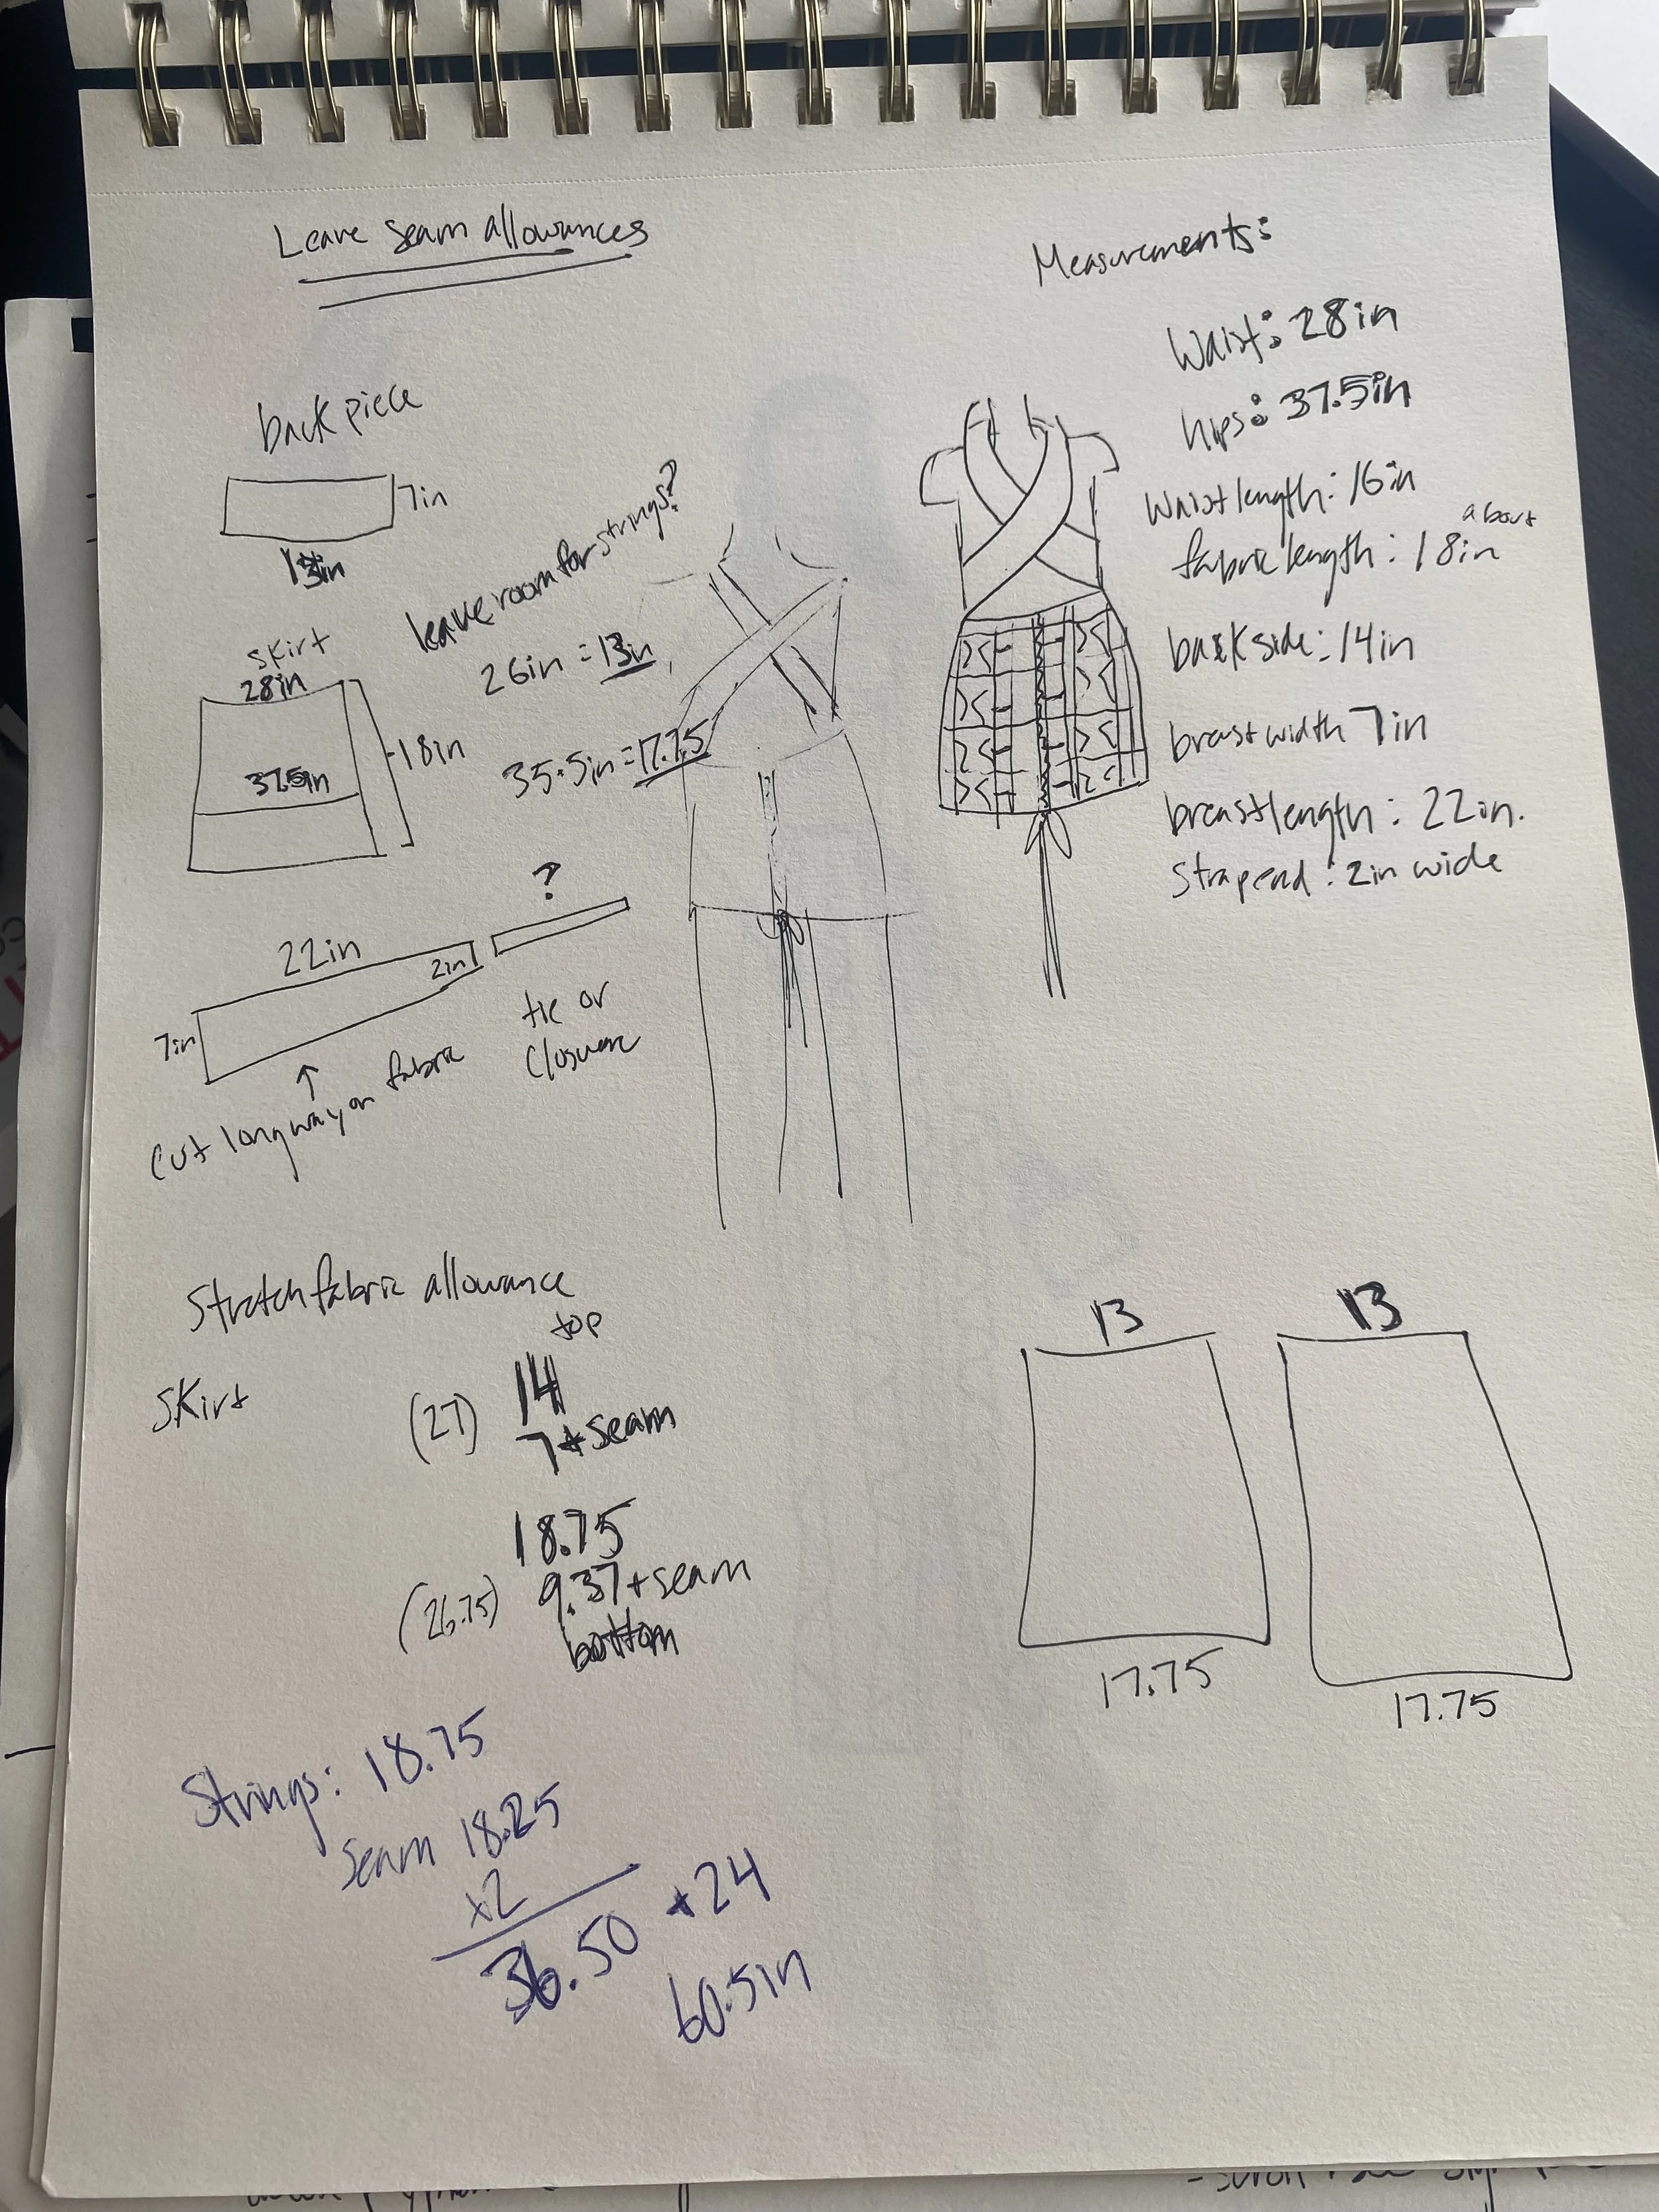 Leave seam allowances
Measurements:
Waist: 28in
hips: 37.5in
Waist length: 16in
about
fabric length: 18in
backside: 14in
breast width 7in
breast length: 22in.
Strap end: 2in wide
back piece
7in
13in
leave room for strings?
26in = 13in
35.5in = 17.75
skirt
28in
18in
37.5in
?
22in
2in
7in
tie or
closure
cut longway on fabric
Stretch fabric allowance
top
Skirt
(27)
14
7 + seam
18.75
(26.75)
9.37 + seam
bottom
13
13
17.75
17.75
Strings: 18.75
Seam 18.25
x2
36.50 + 24
60.5in